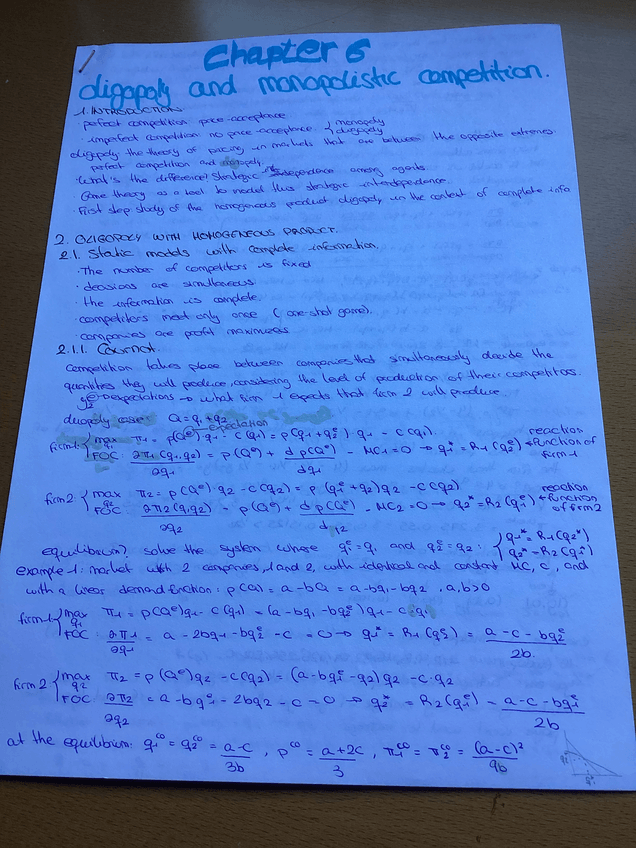 Chapter 6
oligopoly and monopolistic competition.
1. INTRODUCTION
perfect competition: price-acceptance
· imperfect competition: no price-acceptance { monopoly
oligopoly
oligopoly: the theory of pricing in markets that are between the opposite extremes:
perfect competition and monopoly.
· What's the difference? Strategic interdependence among agents.
Game theory as a tool to model this strategic interdependence.
First step: study of the homogeneous product oligopoly in the context of complete info
2. OLIGOPOLY WITH HOMOGENEOUS PRODUCT.
2.1. Static models with complete information.
· The number of competitors is fixed
· decisions are simultaneous
· the information is complete.
· competitors meet only once (one-shot game).
· companies are profit maximizers
2.1.1. Cournot.
Competition takes place between companies that simultaneously decide the
quantities they will produce, considering the level of production of their competitors.
q₂ᵉ expectations → what firm 1 expects that firm 2 will produce
duopoly case: Q = q₁ + q₂
expectation
firm 1 { max π₁ = p(Qᵉ)·q₁ - c(q₁) = p(q₁+q₂ᵉ)·q₁ - c(q₁).
FOC: ∂π₁(q₁,q₂)/∂q₁ = p(Qᵉ) + d p(Qᵉ)/dq₁ - MC₁ = 0 → q₁* = R₁(q₂ᵉ) → reaction function of firm 1
firm 2 { max q₂ π₂ = p(Qᵉ)·q₂ - c(q₂) = p(q₁ᵉ+q₂)q₂ - c(q₂)
FOC ∂π₂(q₁,q₂)/∂q₂ = p(Qᵉ) + d p(Qᵉ)/dq₂ - MC₂ = 0 → q₂* = R₂(q₁ᵉ) → reaction function of firm 2
equilibrium? solve the system where q₁ᵉ = q₁ and q₂ᵉ = q₂: { q₁* = R₁(q₂*)
q₂* = R₂(q₁*)
example 1: market with 2 companies, 1 and 2, with identical and constant MC, c, and
with a linear demand function: p(Q) = a - bQ = a - bq₁ - bq₂, a, b > 0
firm 1 { max q₁ π₁ = p(Qᵉ)q₁ - c(q₁) = (a - bq₁ - bq₂ᵉ)q₁ - c q₁
FOC: ∂π₁/∂q₁ = a - 2bq₁ - bq₂ᵉ - c = 0 → q₁* = R₁(q₂ᵉ) = (a - c - bq₂ᵉ)/2b
firm 2 { max q₂ π₂ = p(Qᵉ)q₂ - c(q₂) = (a - bq₁ᵉ - q₂)q₂ - c·q₂
FOC: ∂π₂/∂q₂ = a - bq₁ᵉ - 2bq₂ - c = 0 → q₂* = R₂(q₁ᵉ) = (a - c - bq₁ᵉ)/2b
at the equilibrium: q₁ᶜᵒ = q₂ᶜᵒ = (a-c)/3b, pᶜᵒ = (a+2c)/3, π₁ᶜᵒ = π₂ᶜᵒ = (a-c)²/9b